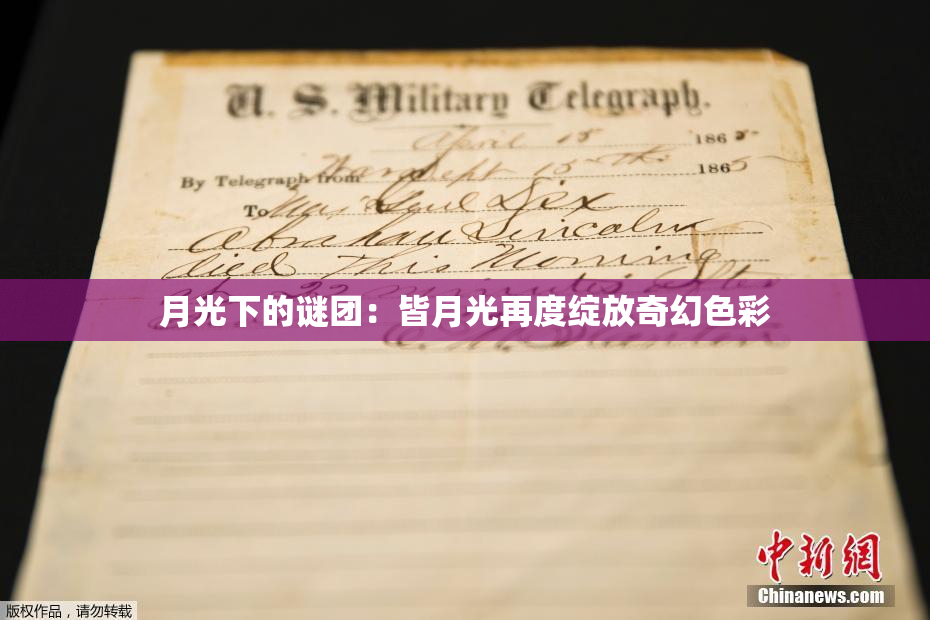 U. S. Military Telegraph.
April 15 1865
By Telegraph from War Dept 15th 1865
To Maj Genl Dix
Abraham Lincoln
died This Morning
at 22 minutes after
月光下的谜团：皆月光再度绽放奇幻色彩
中新网
Chinanews.com
版权作品，请勿转载